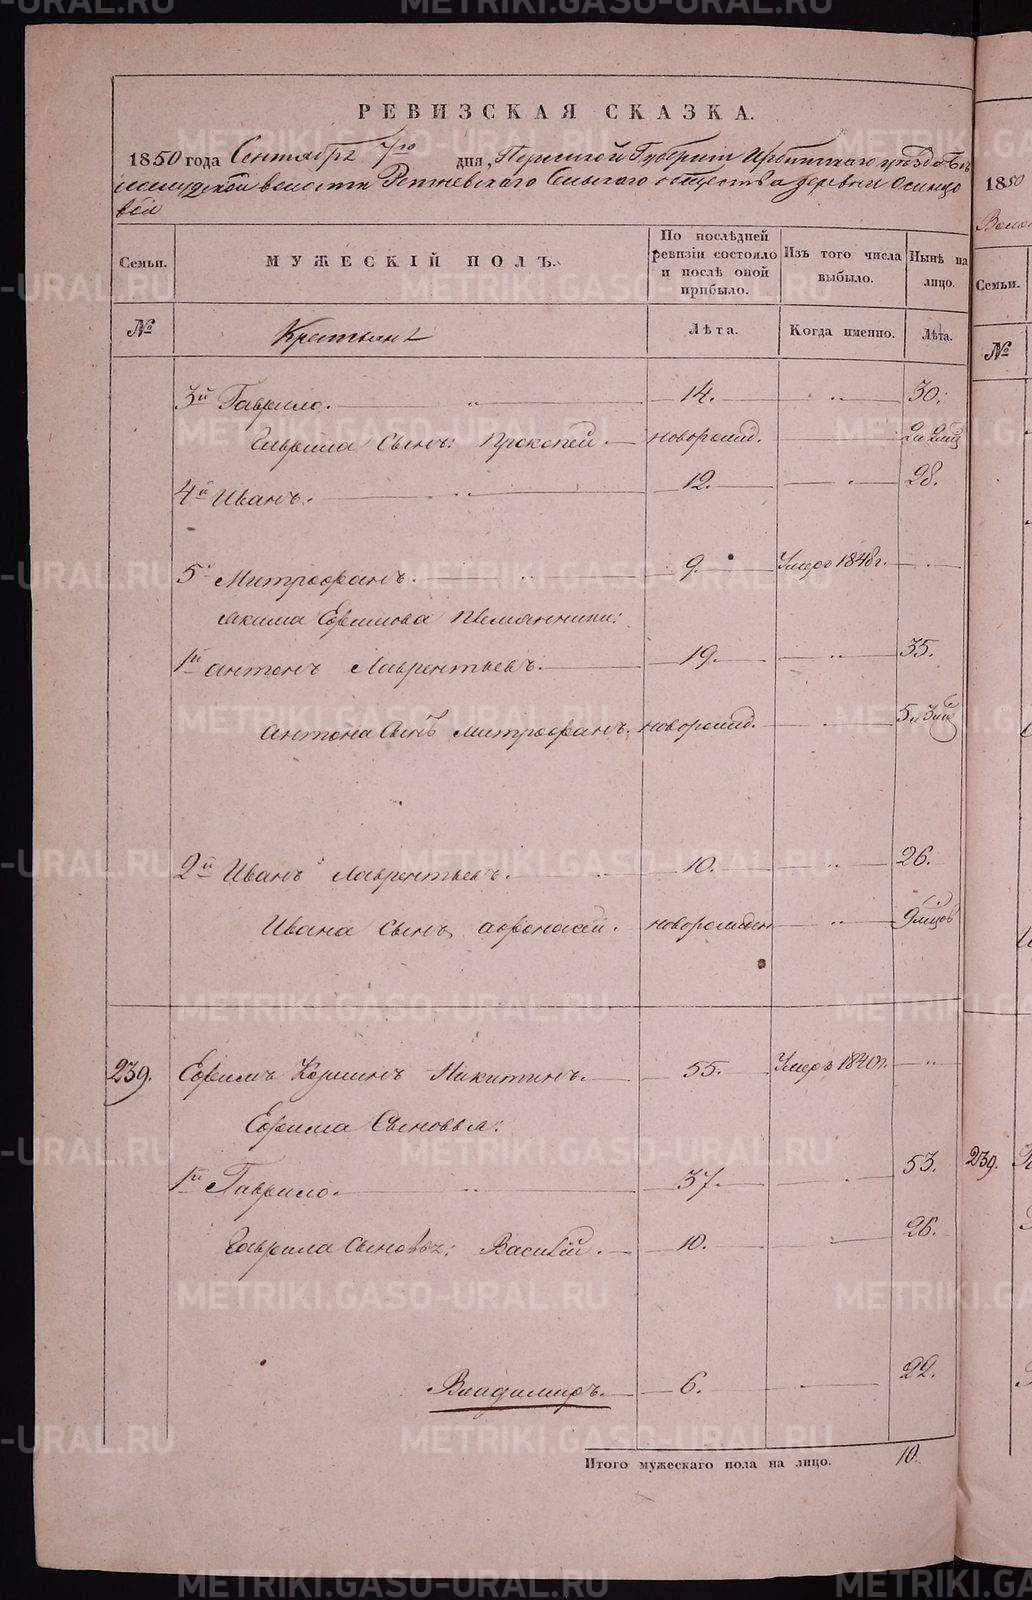 РЕВИЗСКАЯ СКАЗКА.
1850 года Сентября 7го дня, Пермской Губернии Ирбитскаго уѣзда
волости Репневскаго Сельскаго общества деревни Осинцо
вой
Семьи.
МУЖЕСКІЙ ПОЛЪ.
По послѣдней ревизіи состояло и послѣ оной прибыло.
Изъ того числа выбыло.
Нынѣ на лицо.
№
Крестьяне
Лѣта.
Когда именно.
Лѣта.
3й Гаврило. 14. 30.
Гаврила Сынъ: Прокопей. новорожд.
4й Иванъ. 12. 28.
5й Митрофанъ. 9. Умеръ 1848г.
Якима Ефимова племянники:
1й Антонъ Лаврентьевъ. 19. 35.
Антона Сынъ Митрофанъ. новорожд.
2й Иванъ Лаврентьевъ. 10. 26.
Ивана Сынъ Афонасей. новорожден 9 мцов
239. Ефимъ Коршинъ Никитинъ. 55. Умеръ 1840г.
Ефима Сыновья:
1й Гаврило. 37. 53.
Гаврила Сыновья: Василій. 10. 26.
Владимиръ. 6. 22.
Итого мужескаго пола на лицо. 10.
1850
Семьи.
№
239.
METRIKI.GASO-URAL.RU